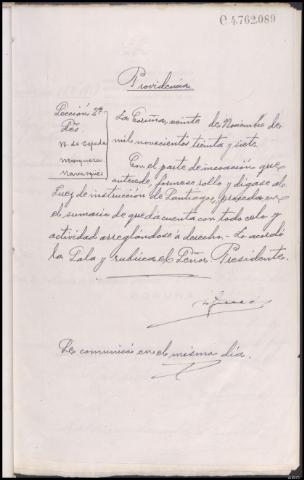 C4.762.089
Providencia
Sección 2ª
Sres.
La Coruña, veinte de Noviembre de
mil novecientos treinta y siete.
Con el parte de incoación que
antecede, fórmese rollo y dígase al
Juez de instrucción de Santiago, proceda en
el sumario de que da cuenta con todo celo y
actividad arreglándose a derecho.- Lo acordó
la Sala y rubrica el Señor Presidente.
Se comunicó en el mismo día.